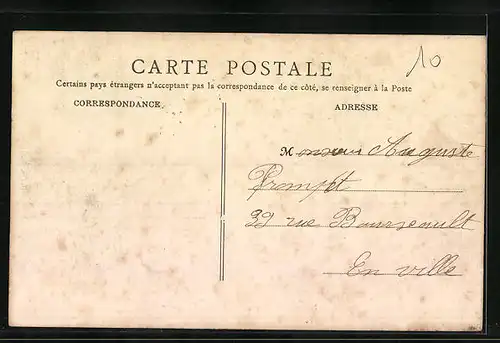 10
CARTE POSTALE
Certains pays étrangers n'acceptant pas la correspondance de ce côté, se renseigner à la Poste
CORRESPONDANCE
ADRESSE
Monsieur Auguste
Prompt
39 rue Boursault
En ville